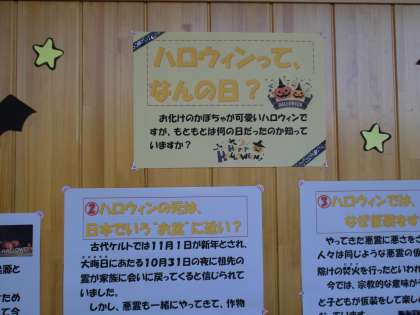 ハロウィンって、
なんの日？
お化けのかぼちゃが可愛いハロウィンで
すが、もともとは何の日だったのか知って
いますか？
HALLOWEEN
HAPPY
HALLOWEEN
②ハロウィンの元は、
日本でいう“お盆”に近い？
古代ケルトでは11月1日が新年とされ、
大晦日にあたる10月31日の夜に祖先の
霊が家族に会いに戻ってくると信じられて
いました。
しかし、悪霊も一緒にやってきて、作物
③ハロウィンでは、
なぜ仮装をす
やってきた悪霊に悪さをさ
人々は同じような悪霊の仮
除けの焚火を行ったといわれ
今では、宗教的な意味が
と子どもが仮装をして楽し